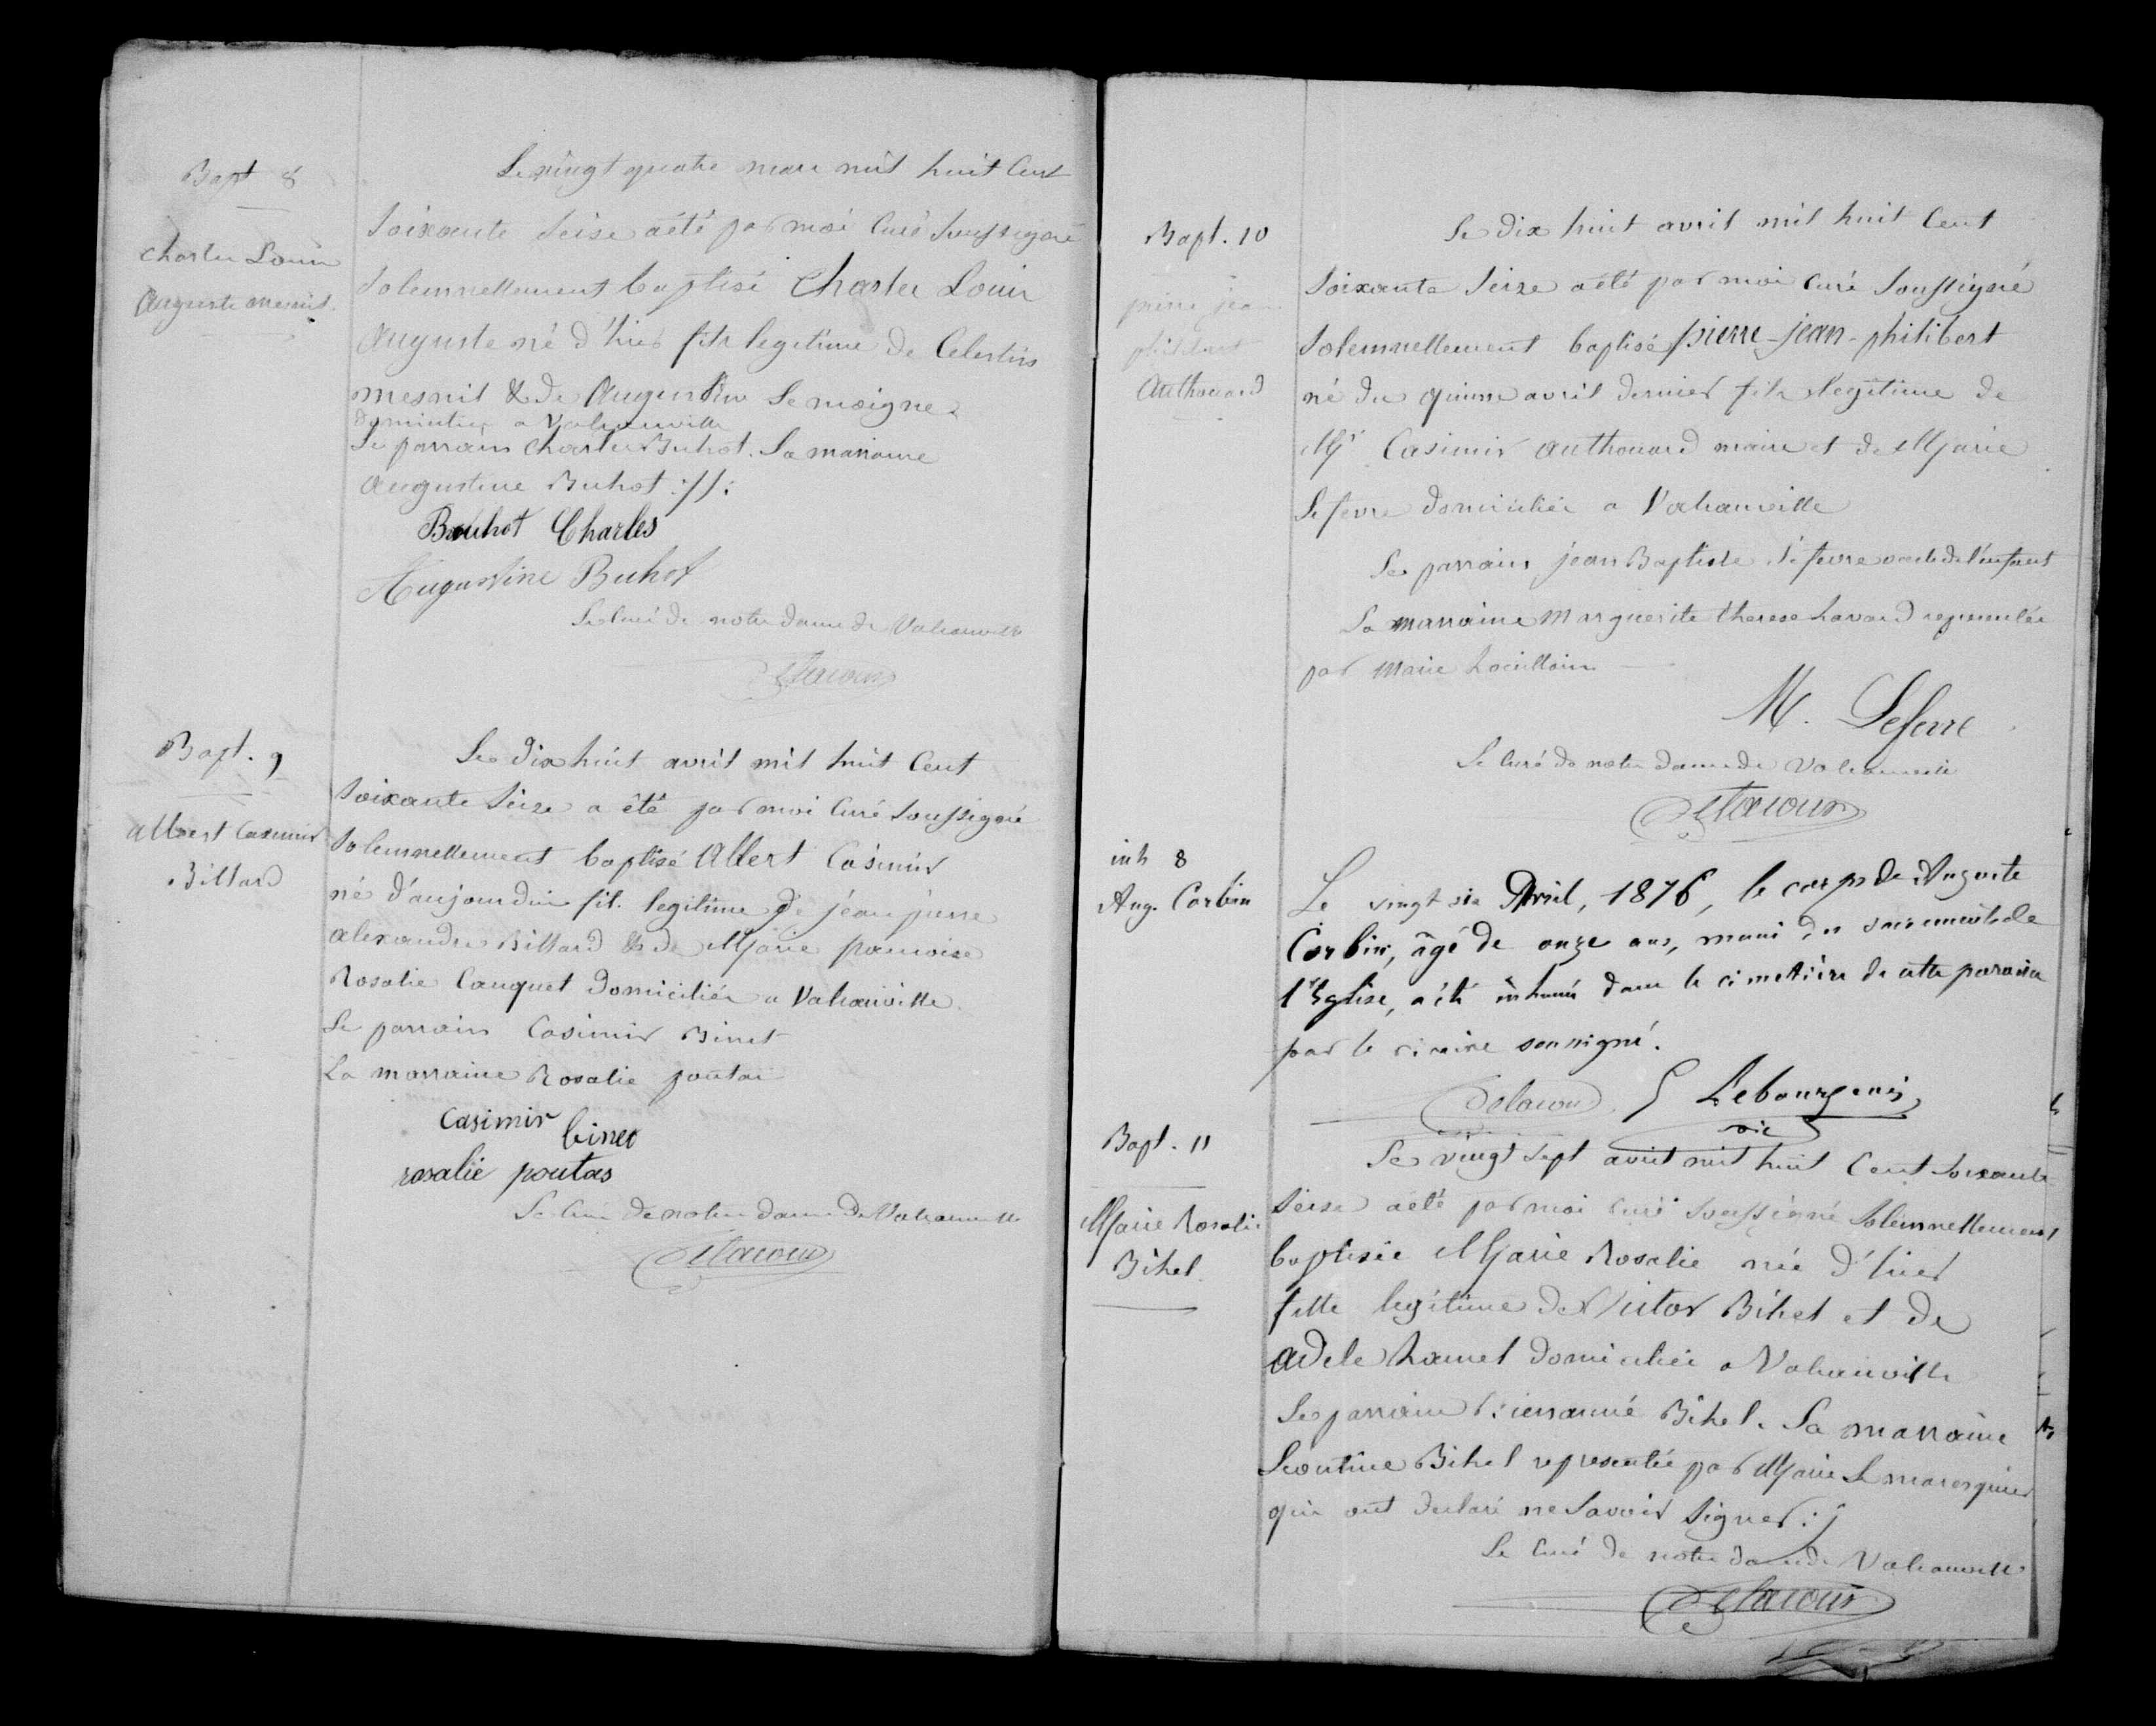 Bapt 8
Charles Louis
Auguste Mesnil.
Le vingt quatre mars mil huit Cent
soixante seize a été par moi Curé soussigné
solemnellement baptisé Charles Louis
Auguste né d'hier fils legitime de Celestin
mesnil & de Augustine Lemoigne
a Vatteville
Le parrain Charles Buhot. La marraine
Augustine Buhot ://:
Bouhot Charles
Augustine Buhot
Le Curé de notre dame de
Delacour
Bapt. 9
Albert Casimir
Billard
Le dix huit avril mil huit Cent
soixante seize a été par moi Curé soussigné
solemnellement baptisé Albert Casimir
né d'aujourdhui fils legitime de jean pierre
alexandre Billard & de Marie
Rosalie Cauquet domiciliés a
Le parrain Casimir Binet
La marraine Rosalie
Casimir binet
rosalie poutas
Le Curé de notre dame de
Delacour
Bapt. 10
pierre jean
philibert
Authouard
Le dix huit avril mil huit Cent
soixante seize a été par moi Curé soussigné
solemnellement baptisé pierre-jean-philibert
né du quinze avril dernier fils legitime de
Mr Casimir Authouard maire et de Marie
Lefevre domiciliés a
Le parrain jean Baptiste Lefevre oncle de l'enfant
La marraine Marguerite therese havard representée
par Marie
M. Lefevre
Le Curé de notre dame de
Delacour
inh 8
Aug. Corbin
Le vingt six Avril, 1876, le corps de Auguste
Corbin, âgé de onze ans, muni des sacrements de
l'Eglise, a été inhumé dans le cimetière de cette paroisse
par le vicaire soussigné.
Delacour Lebourgeois
vic
Bapt. 11
Marie Rosalie
Bihel
Le vingt sept avril mil huit Cent soixante
seize a été par moi curé soussigné solemnellement
baptisée Marie Rosalie née d'hier
fille legitime de Victor Bihel et de
adele hamel domiciliés a
Le parrain Bihel. La marraine
Leontine Bihel representée par Marie Lemaresquier
qui ont declaré ne savoir signer :/
Le Curé de notre dame de
Delacour